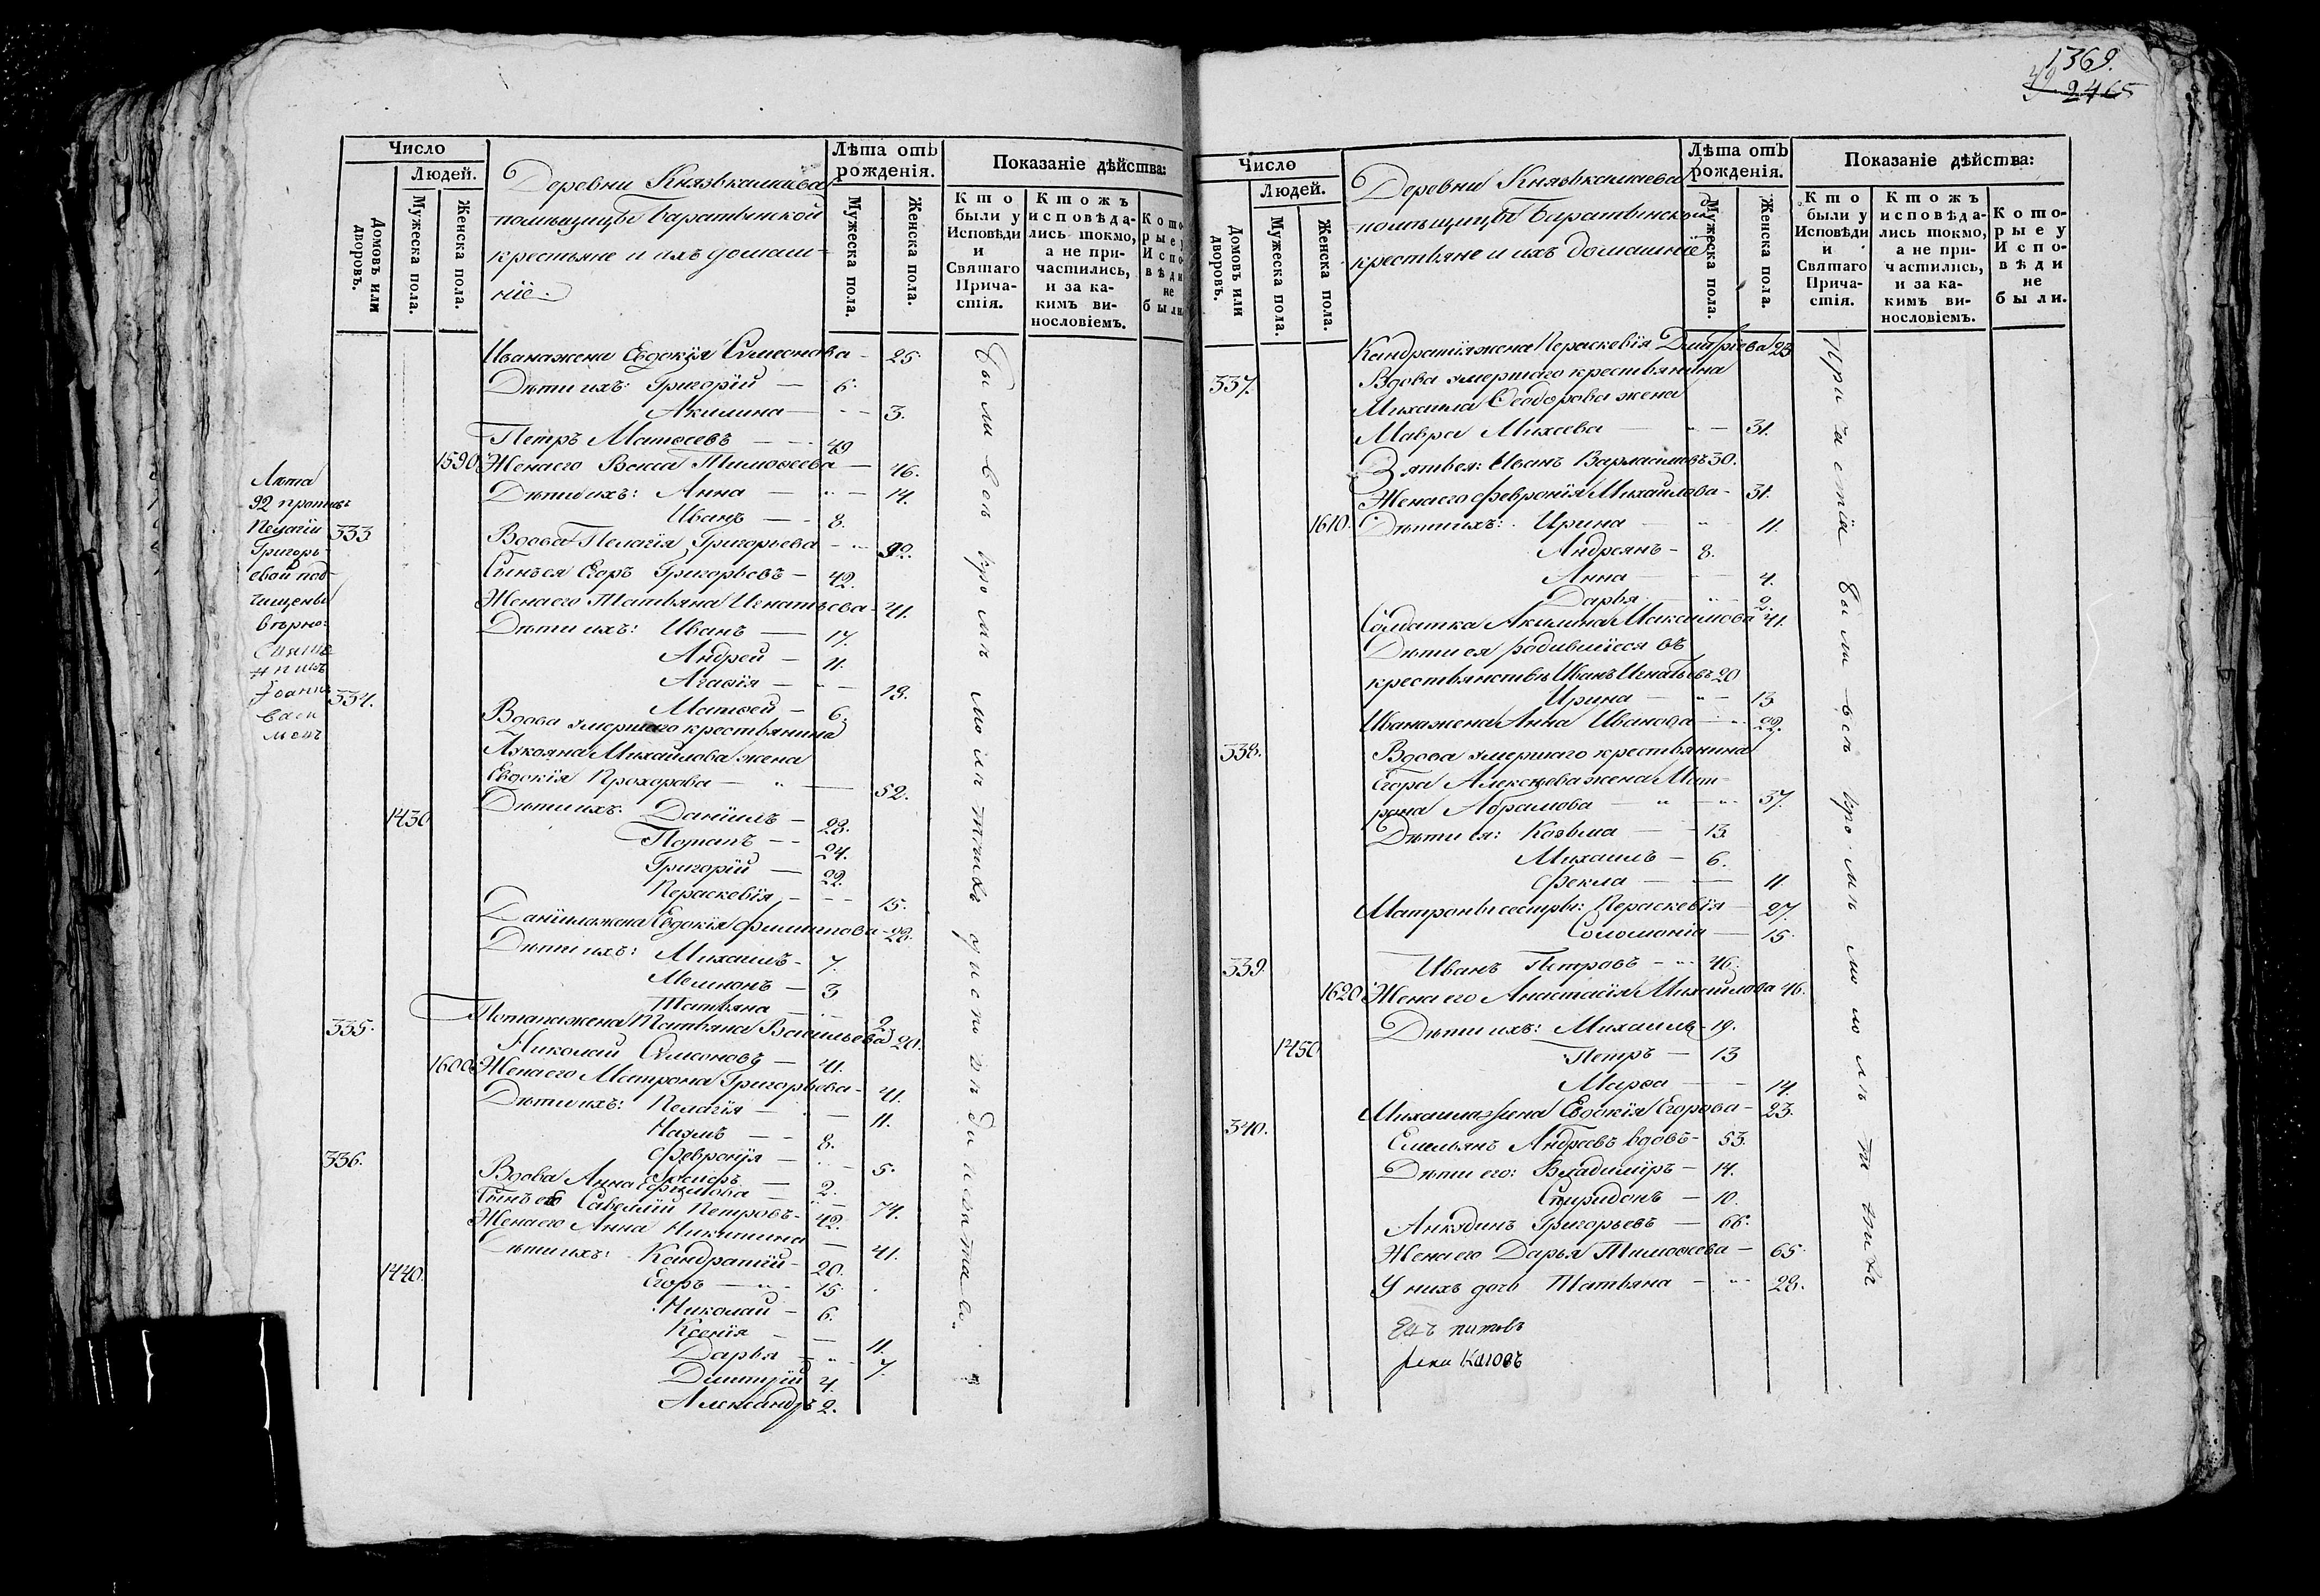 1369.
49 2465
Число
Людей.
Домовъ или дворовъ.
Мужеска пола.
Женска пола.
Деревни Князькамаева
помѣщицы Баратынской
крестьяне и ихъ домаш-
ніе.
Лѣта отъ рожденія.
Мужеска пола.
Женска пола.
Показаніе дѣйства:
Кто были у Исповѣди и Святаго Прича-стія.
Ктожъ исповѣда-лись токмо, а не при-частились, и за ка-кимъ ви-нословіемъ.
Кото-рые у Испо-вѣди не были
Ивана жена Евдокія Симеонова - 25.
Дѣти ихъ: Григорій — 6.
Акилина — 3.
Петръ Матвеевъ — 49
1590 Жена его Васса Тимофеева — 46.
Дѣти ихъ: Анна — 14.
Иванъ — 8.
333 Вдова Пелагія Григорьева - 92.
Сынъ ея Егоръ Григорьевъ - 42.
Жена его Татьяна Игнатьева - 41.
Дѣти ихъ: Иванъ — 17.
Андрей — 11.
Агафія — 19.
Матвей — 6.
334. Вдова умершаго крестьянина
Лукояна Михайлова жена
Евдокія Прохорова — 52.
1430 Дѣти ихъ: Даніилъ — 28.
Потапъ - 24.
Григорій — 22.
Пераскевія - 15.
Даніила жена Евдокія Филиппова - 28.
Дѣти ихъ: Михаилъ - 7.
Мемнонъ — 3
Татьяна — 2.
Потапа жена Татьяна Васильева 20.
335. Николай Симеоновъ — 41.
1600 Жена его Матрона Григорьева - 41.
Дѣти ихъ: Пелагія — 11.
Наумъ — 8.
Февронія — 5.
Іосифъ — 2.
336. Вдова Анна Ефимова — 74.
Сынъ ея Савелій Петровъ - 42.
Жена его Анна Никитина — 41.
Дѣти ихъ: Кондратій - 20.
1440. Егоръ — 15.
Николай — 6.
Ксенія — 11.
Дарья — 7.
Дмитрій 4.
Александръ 2.
Лѣта
92 противъ
Пелагіи
Григорь-
евой под-
чищены
вѣрно:
Свяще
нникъ
Іоаннъ
были всѣ кромѣ малолѣтныхъ у исповѣди и святаго
Число
Людей.
Домовъ или дворовъ.
Мужеска пола.
Женска пола.
Деревни Князькамаева
помѣщицы Баратынской
крестьяне и ихъ домашніе
Лѣта отъ рожденія.
Мужеска пола.
Женска пола.
Показаніе дѣйства:
Кто были у Исповѣди и Святаго Прича-стія.
Ктожъ исповѣда-лись токмо, а не при-частились, и за ка-кимъ ви-нословіемъ.
Кото-рые у Испо-вѣди не были.
Кондратія жена Пераскевія Дмитріева 23
337. Вдова умершаго крестьянина
Михаила Феодорова жена
Мавра Михеева — 51.
Зять ея: Иванъ Варламовъ 30.
Жена его Февронія Михайлова - 31.
1610. Дѣти ихъ: Ирина — 11.
Андреянъ - 8.
Анна — 4.
Дарья — 2.
Солдатка Акилина Максимова 41.
Дѣти ея родившіеся въ
крестьянствѣ Иванъ Игнатьевъ 20
Ирина — 13
Ивана жена Анна Иванова — 22.
338. Вдова умершаго крестьянина
Егора Алексѣева жена Мат-
рона Абрамова — 37.
Дѣти ея: Козьма — 13.
Михаилъ — 6.
Фекла — 11.
Матроны сестры: Пераскевія — 27.
Соломонія — 15.
339. Иванъ Петровъ - 46.
1620 Жена его Анастасія Михайлова 46.
Дѣти ихъ: Михаилъ - 19.
1450 Петръ — 13
Марфа — 14.
Михаила жена Евдокія Егорова - 23.
340. Емельянъ Андреевъ вдовъ - 53.
Дѣти его: Владимиръ — 14.
Спиридонъ — 10.
Анкудинъ Григорьевъ — 66.
Жена его Дарья Тимофеева — 65.
У нихъ дочь Татьяна - 28.
причастія были всѣ кромѣ малолѣтныхъ